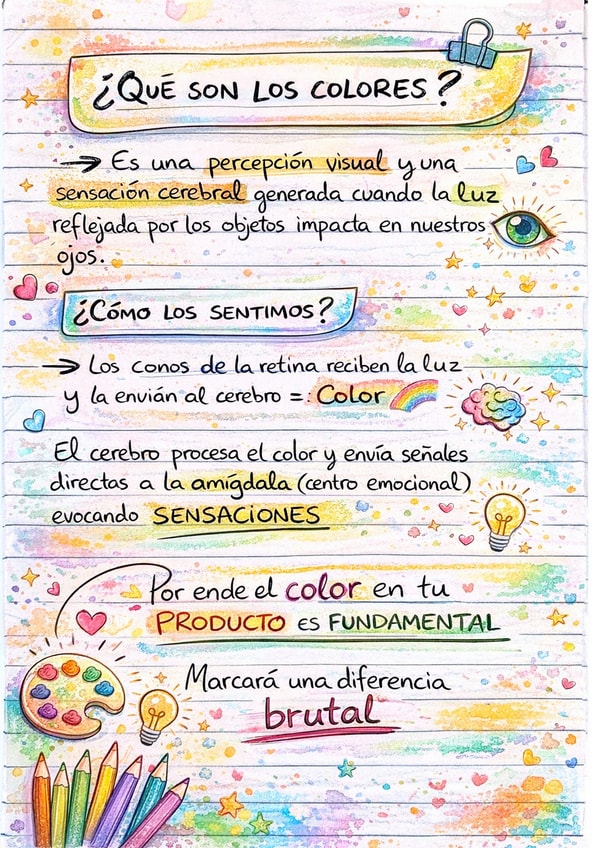 ¿QUÉ SON LOS COLORES?
→ Es una percepción visual y una
sensación cerebral generada cuando la luz
reflejada por los objetos impacta en nuestros
ojos.
¿CÓMO LOS SENTIMOS?
→ Los conos de la retina reciben la luz
y la envián al cerebro =: Color
El cerebro procesa el color y envía señales
directas a la amígdala (centro emocional)
evocando SENSACIONES
Por ende el color en tu
PRODUCTO ES FUNDAMENTAL
Marcará una diferencia
brutal